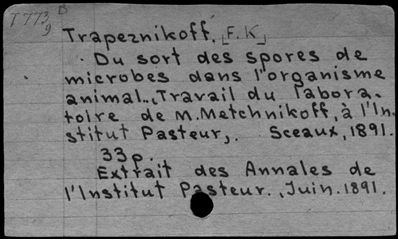 T773 D
9
Trapeznikoff, [F. K]
Du sort des spores de
microbes dans l'organisme
animal... (Travail du labora-
toire de M. Metchnikoff, à l'In-
stitut Pasteur). Sceaux, 1891.
33p.
Extrait des Annales de
l'Institut Pasteur., Juin. 1891.